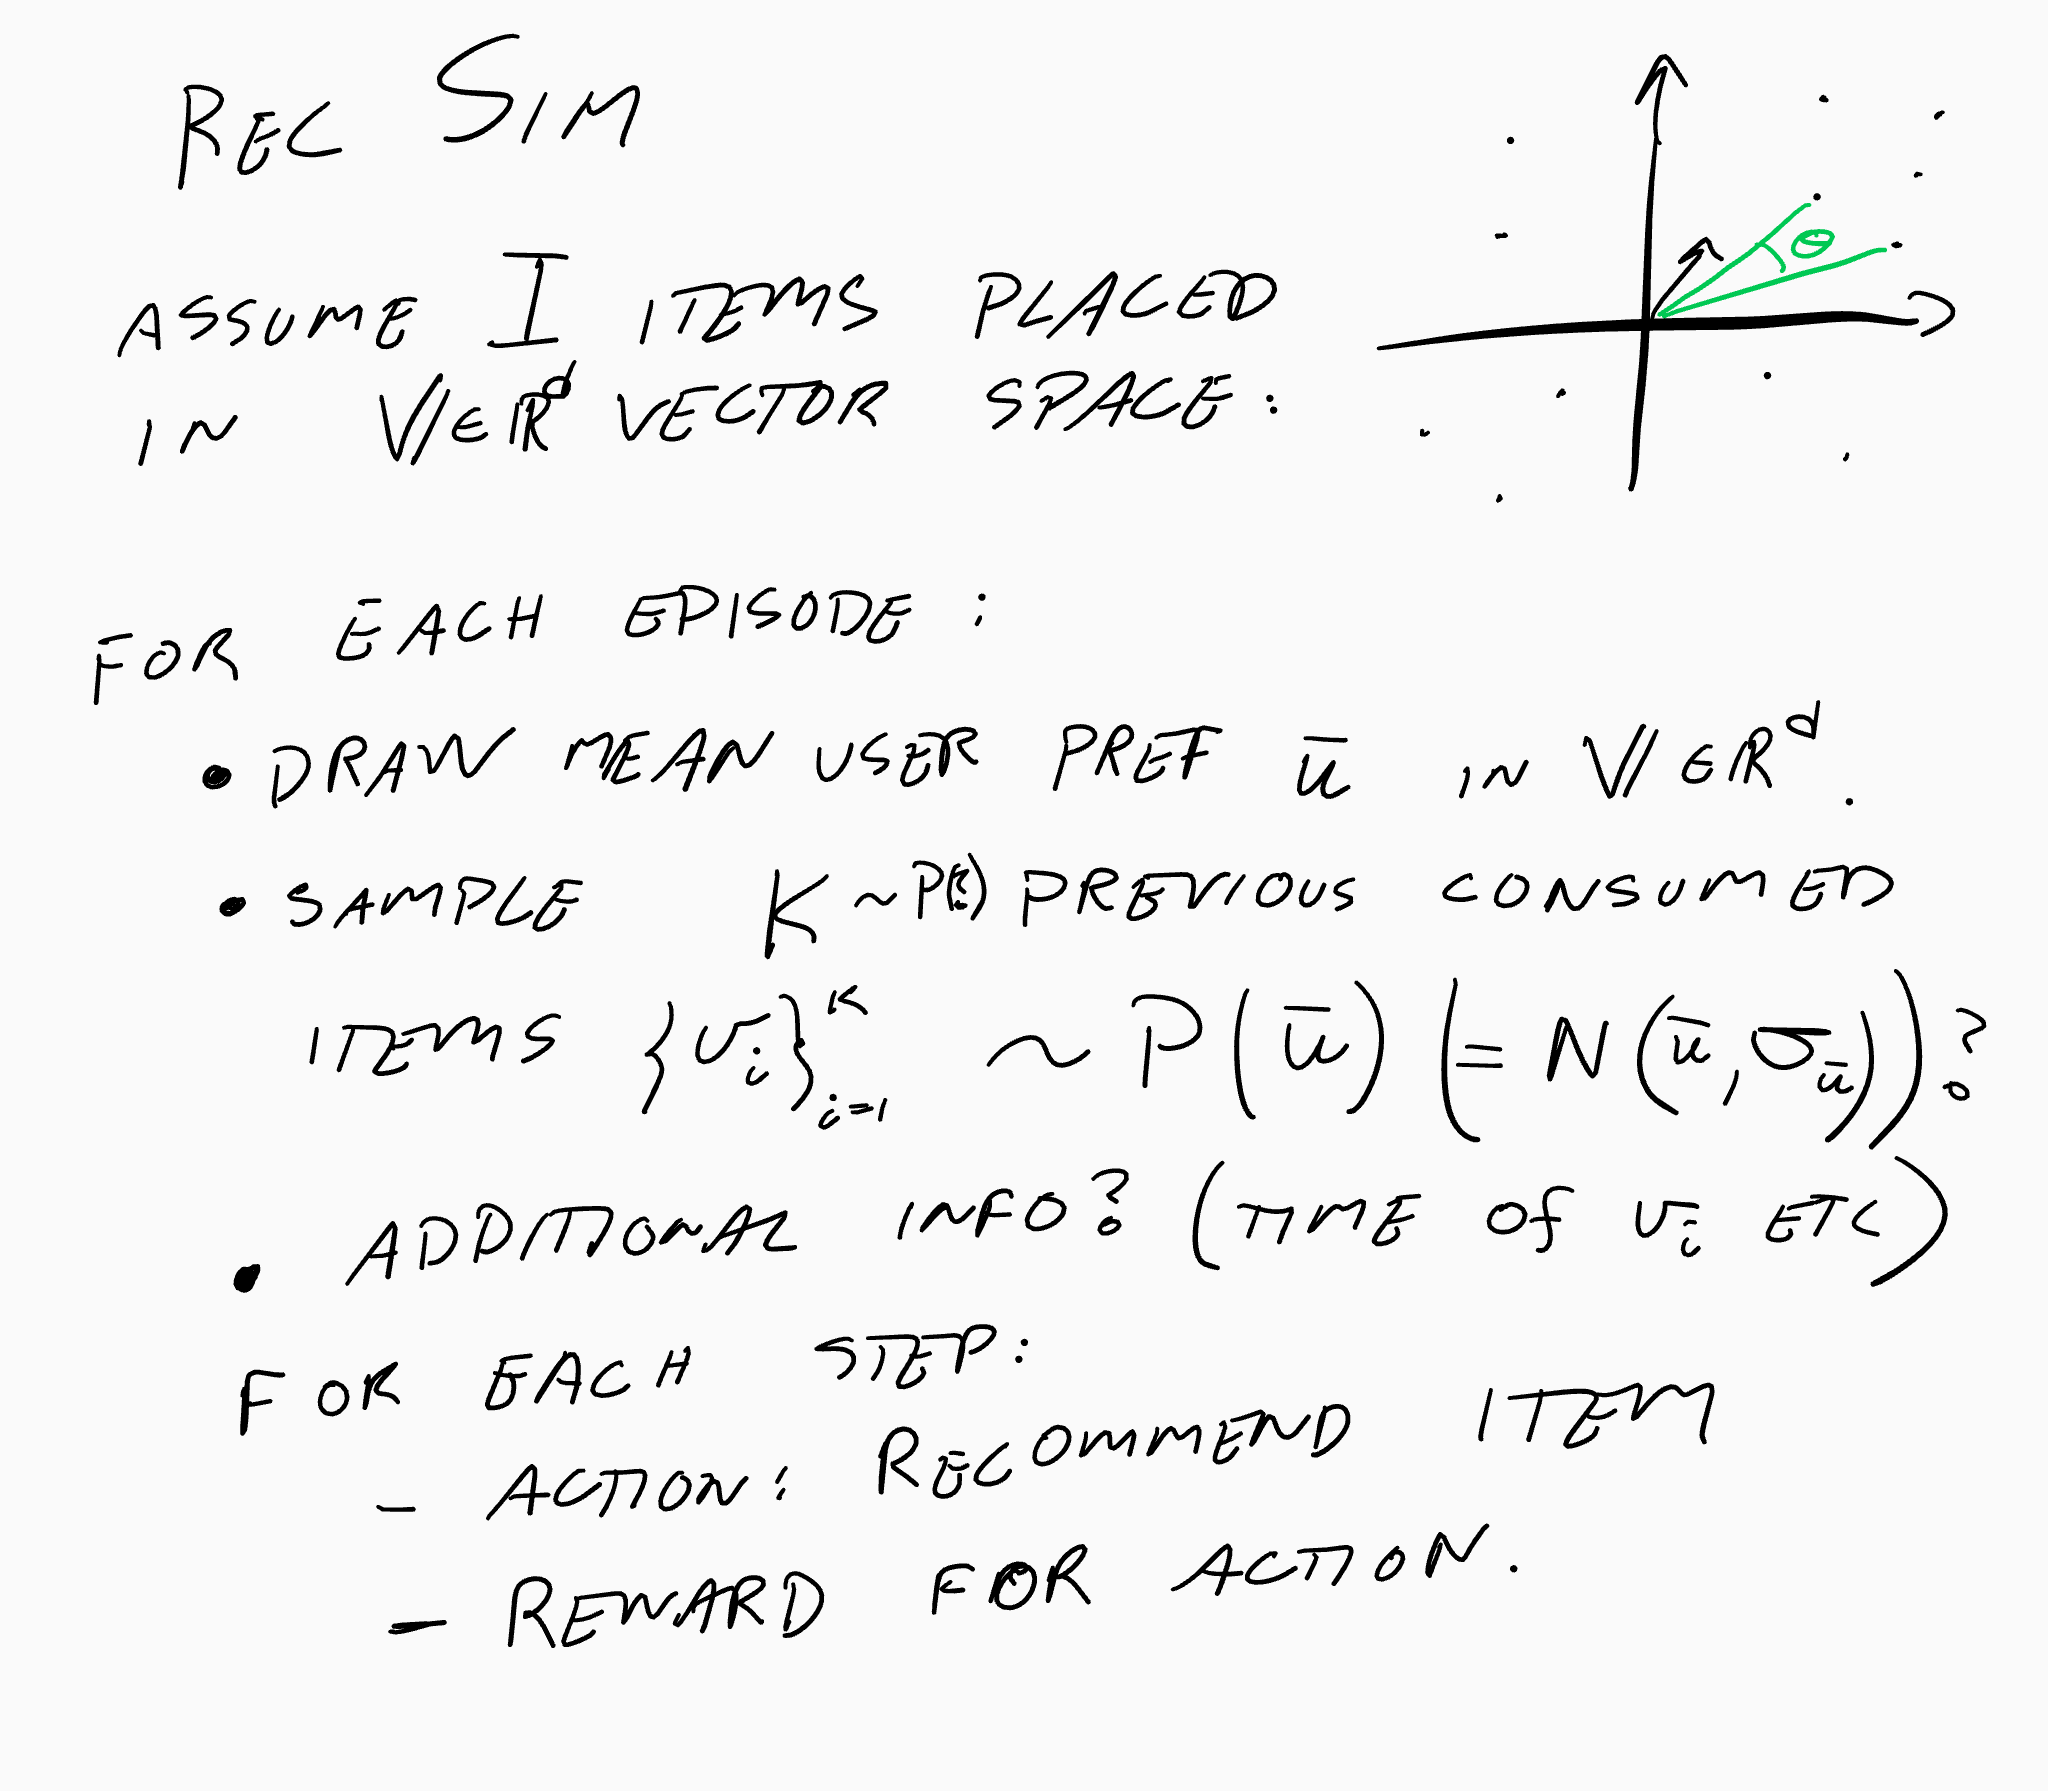 REC SIM
θ
ASSUME I ITEMS PLACED
IN V∈ℝᵈ VECTOR SPACE:
FOR EACH EPISODE:
• DRAW MEAN USER PREF ū IN V∈ℝᵈ.
• SAMPLE K ~ P(k) PREVIOUS CONSUMED
ITEMS {vᵢ}ᵢ₌₁ᴷ ~ P(ū) (= N(ū, σ_ū))?
• ADDITIONAL INFO? (TIME of vᵢ ETC)
FOR EACH STEP:
- ACTION: RECOMMEND ITEM
- REWARD FOR ACTION.